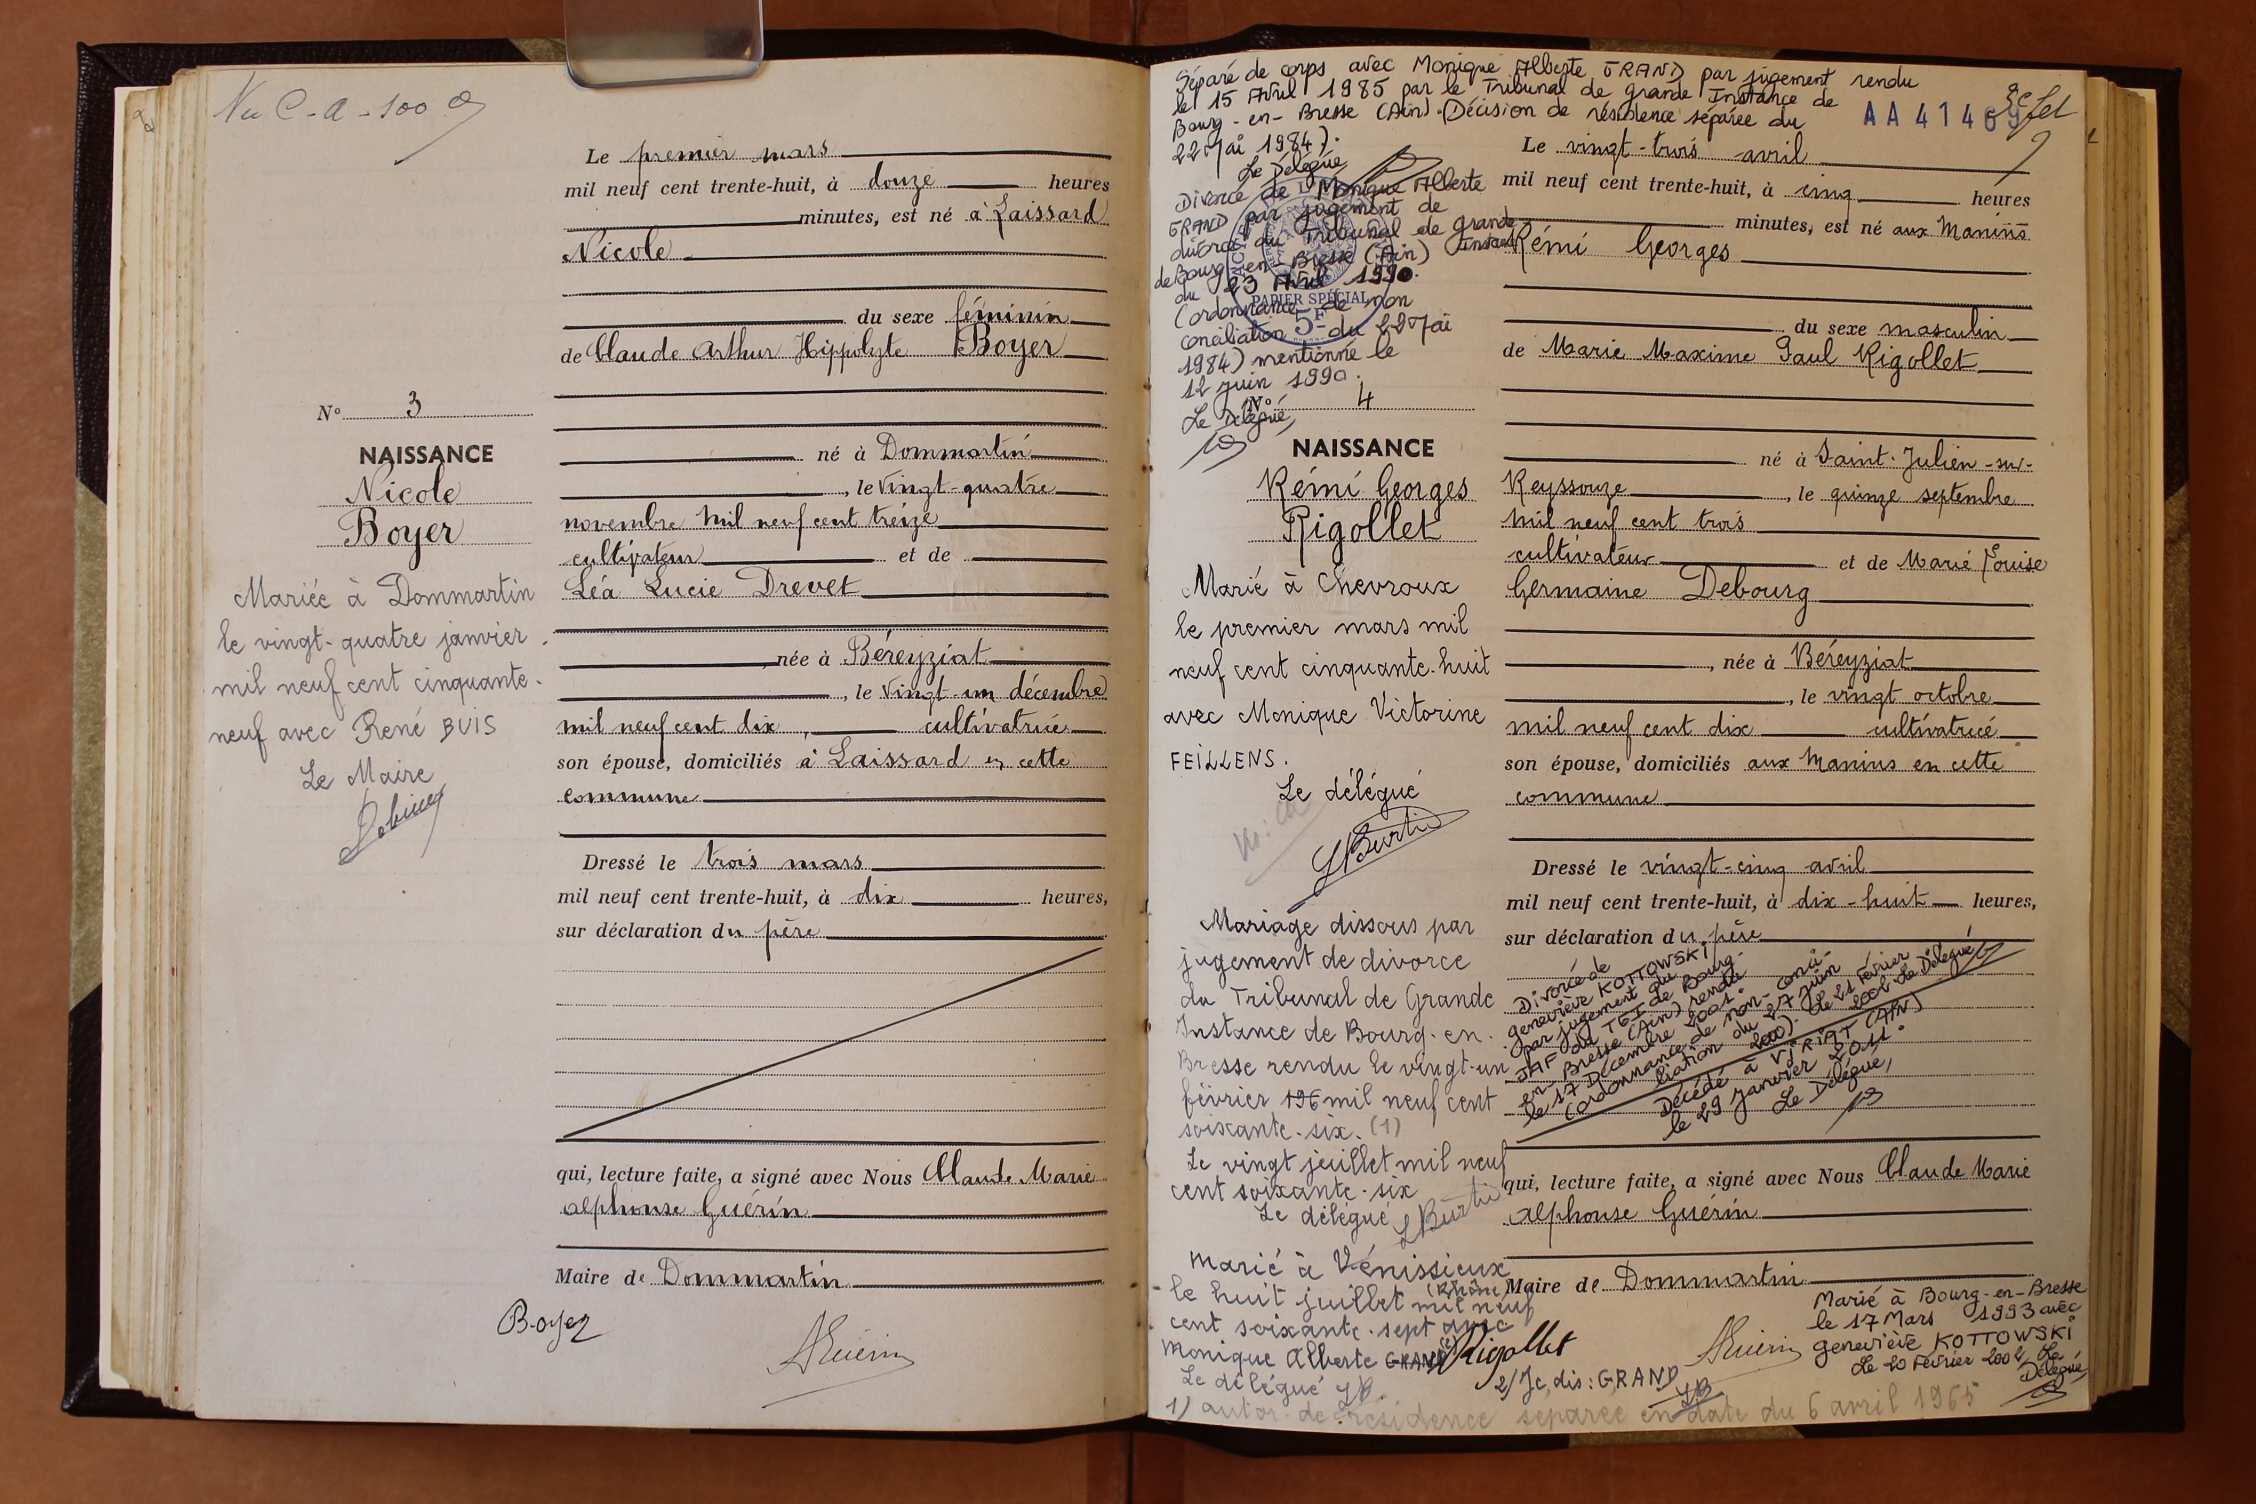 Nu C-a-100
Le premier mars
mil neuf cent trente-huit, à douze heures
minutes, est né à Laissard
Nicole
du sexe féminin
de Claude Arthur Hippolyte Boyer
N° 3
NAISSANCE
Nicole
Boyer
né à Dommartin
, le Vingt-quatre
novembre mil neuf cent treize
cultivateur et de
Léa Lucie Drevet
, née à Béreyziat
, le Vingt-un décembre
mil neuf cent dix, cultivatrice
son épouse, domiciliés à Laissard en cette
commune
Mariée à Dommartin
le vingt-quatre janvier
mil neuf cent cinquante-
neuf avec René BUIS
Le Maire
Dressé le trois mars
mil neuf cent trente-huit, à dix heures,
sur déclaration du père
qui, lecture faite, a signé avec Nous Claude Marie
Alphonse Guérin
Maire de Dommartin
Boyer
AGuérin
Séparé de corps avec Monique Alberte GRAND par jugement rendu
le 15 Avril 1985 par le Tribunal de grande Instance de
Bourg-en-Bresse (Ain). (Décision de résidence séparée du
22 Mai 1984).
Le Délégué
AA 41409
Divorcé de Monique Alberte
GRAND par jugement de
divorce du Tribunal de grande
Instance
de Bourg-en-Bresse (Ain)
du 23 Avril 1990.
(ordonnance de non
conciliation du 22 Mai
1984) mentionné le
12 juin 1990.
Le Délégué,
PAPIER SPÉCIAL
5F
Le vingt-trois avril
mil neuf cent trente-huit, à cinq heures
minutes, est né aux Manins
Rémi Georges
du sexe masculin
de Marie Maxime Paul Rigollet
N° 4
NAISSANCE
Rémi Georges
Rigollet
né à Saint-Julien-sur-
Reyssouze, le quinze septembre
mil neuf cent trois
cultivateur et de Marie Louise
Germaine Debourg
, née à Béreyziat
, le vingt octobre
mil neuf cent dix cultivatrice
son épouse, domiciliés aux Manins en cette
commune
Marié à Chevroux
le premier mars mil
neuf cent cinquante-huit
avec Monique Victorine
FEILLENS.
Le délégué
LBurtin
Dressé le vingt-cinq avril
mil neuf cent trente-huit, à dix-huit heures,
sur déclaration du père
Mariage dissous par
jugement de divorce
du Tribunal de Grande
Instance de Bourg-en-
Bresse rendu le vingt-un
février 196 mil neuf cent
soixante-six. (1)
Le vingt juillet mil neuf
cent soixante-six
Le délégué LBurtin
Divorcé de
geneviève KOTTOWSKI
par jugement du
JAF du TGI de Bourg-
en-Bresse (Ain) rendu
le 17 Décembre 2001.
(ordonnance de non-conci-
liation du 27 juin
2000). Le 21 Février
2002 Le Délégué
Décédé à VIRIAT (AIN)
le 29 janvier 2011.
Le Délégué,
qui, lecture faite, a signé avec Nous Claude Marie
Alphonse Guérin
Maire de Dommartin
Marié à Vénissieux
(Rhône)
le huit juillet mil neuf
cent soixante-sept avec
Monique Alberte GRAND
Le délégué LB.
Rigollet
2/ Je dis: GRAND
LB
AGuérin
Marié à Bourg-en-Bresse
le 17 Mars 1993 avec
geneviève KOTTOWSKI
Le 20 Février 2002 Le
Délégué
1) autor. de résidence séparée en date du 6 avril 1965